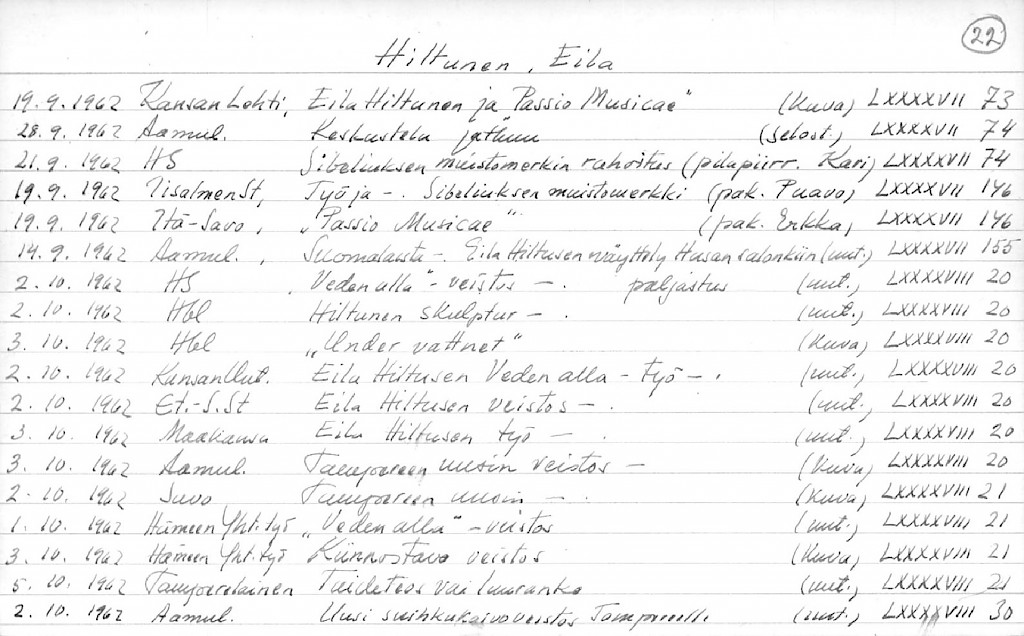 22
Hiltunen, Eila
19.9.1962 Kansan Lehti, Eila Hiltunen ja Passio Musicae" (Kuva) LXXXXVII 73
28.9.1962 Aamul. Keskustelu jatkuu (selost.) LXXXXVII 74
21.9.1962 HS Sibeliuksen muistomerkin rahoitus (pilapiirr. Kari) LXXXXVII 74
19.9.1962 Iisalmen St, Työ ja -. Sibeliuksen muistomerkki (pak. Paavo) LXXXXVII 146
19.9.1962 Itä-Savo, „Passio Musicae" (pak. Erkka) LXXXXVII 146
14.9.1962 Aamul., Suomalaista -. Eila Hiltusen näyttely Husan salonkiin (uut.) LXXXXVII 155
2.10.1962 HS „Veden alla"-veistos -. paljastus (uut.) LXXXXVIII 20
2.10.1962 Hbl Hiltunen skulptur -. (uut.) LXXXXVIII 20
3.10.1962 Hbl „Under vattnet" (Kuva) LXXXXVIII 20
2.10.1962 Kansan Uut. Eila Hiltusen Veden alla - työ -. (uut.) LXXXXVIII 20
2.10.1962 Et.-S.St Eila Hiltusen veistos -. (uut.) LXXXXVIII 20
3.10.1962 Maakansa Eila Hiltusen työ -. (uut.) LXXXXVIII 20
3.10.1962 Aamul. Tampereen uusin veistos - (Kuva) LXXXXVIII 20
2.10.1962 Savo Tampereen uusin -. (Kuva) LXXXXVIII 21
1.10.1962 Hämeen Yht.työ „Veden alla"-veistos (uut.) LXXXXVIII 21
3.10.1962 Hämeen Yht.työ Kiinnostava veistos (Kuva) LXXXXVIII 21
5.10.1962 Tamperelainen Taideteos vai luuranko (uut.) LXXXXVIII 21
2.10.1962 Aamul. Uusi suihkukaivoveistos Tampereelle (uut.) LXXXXVIII 30